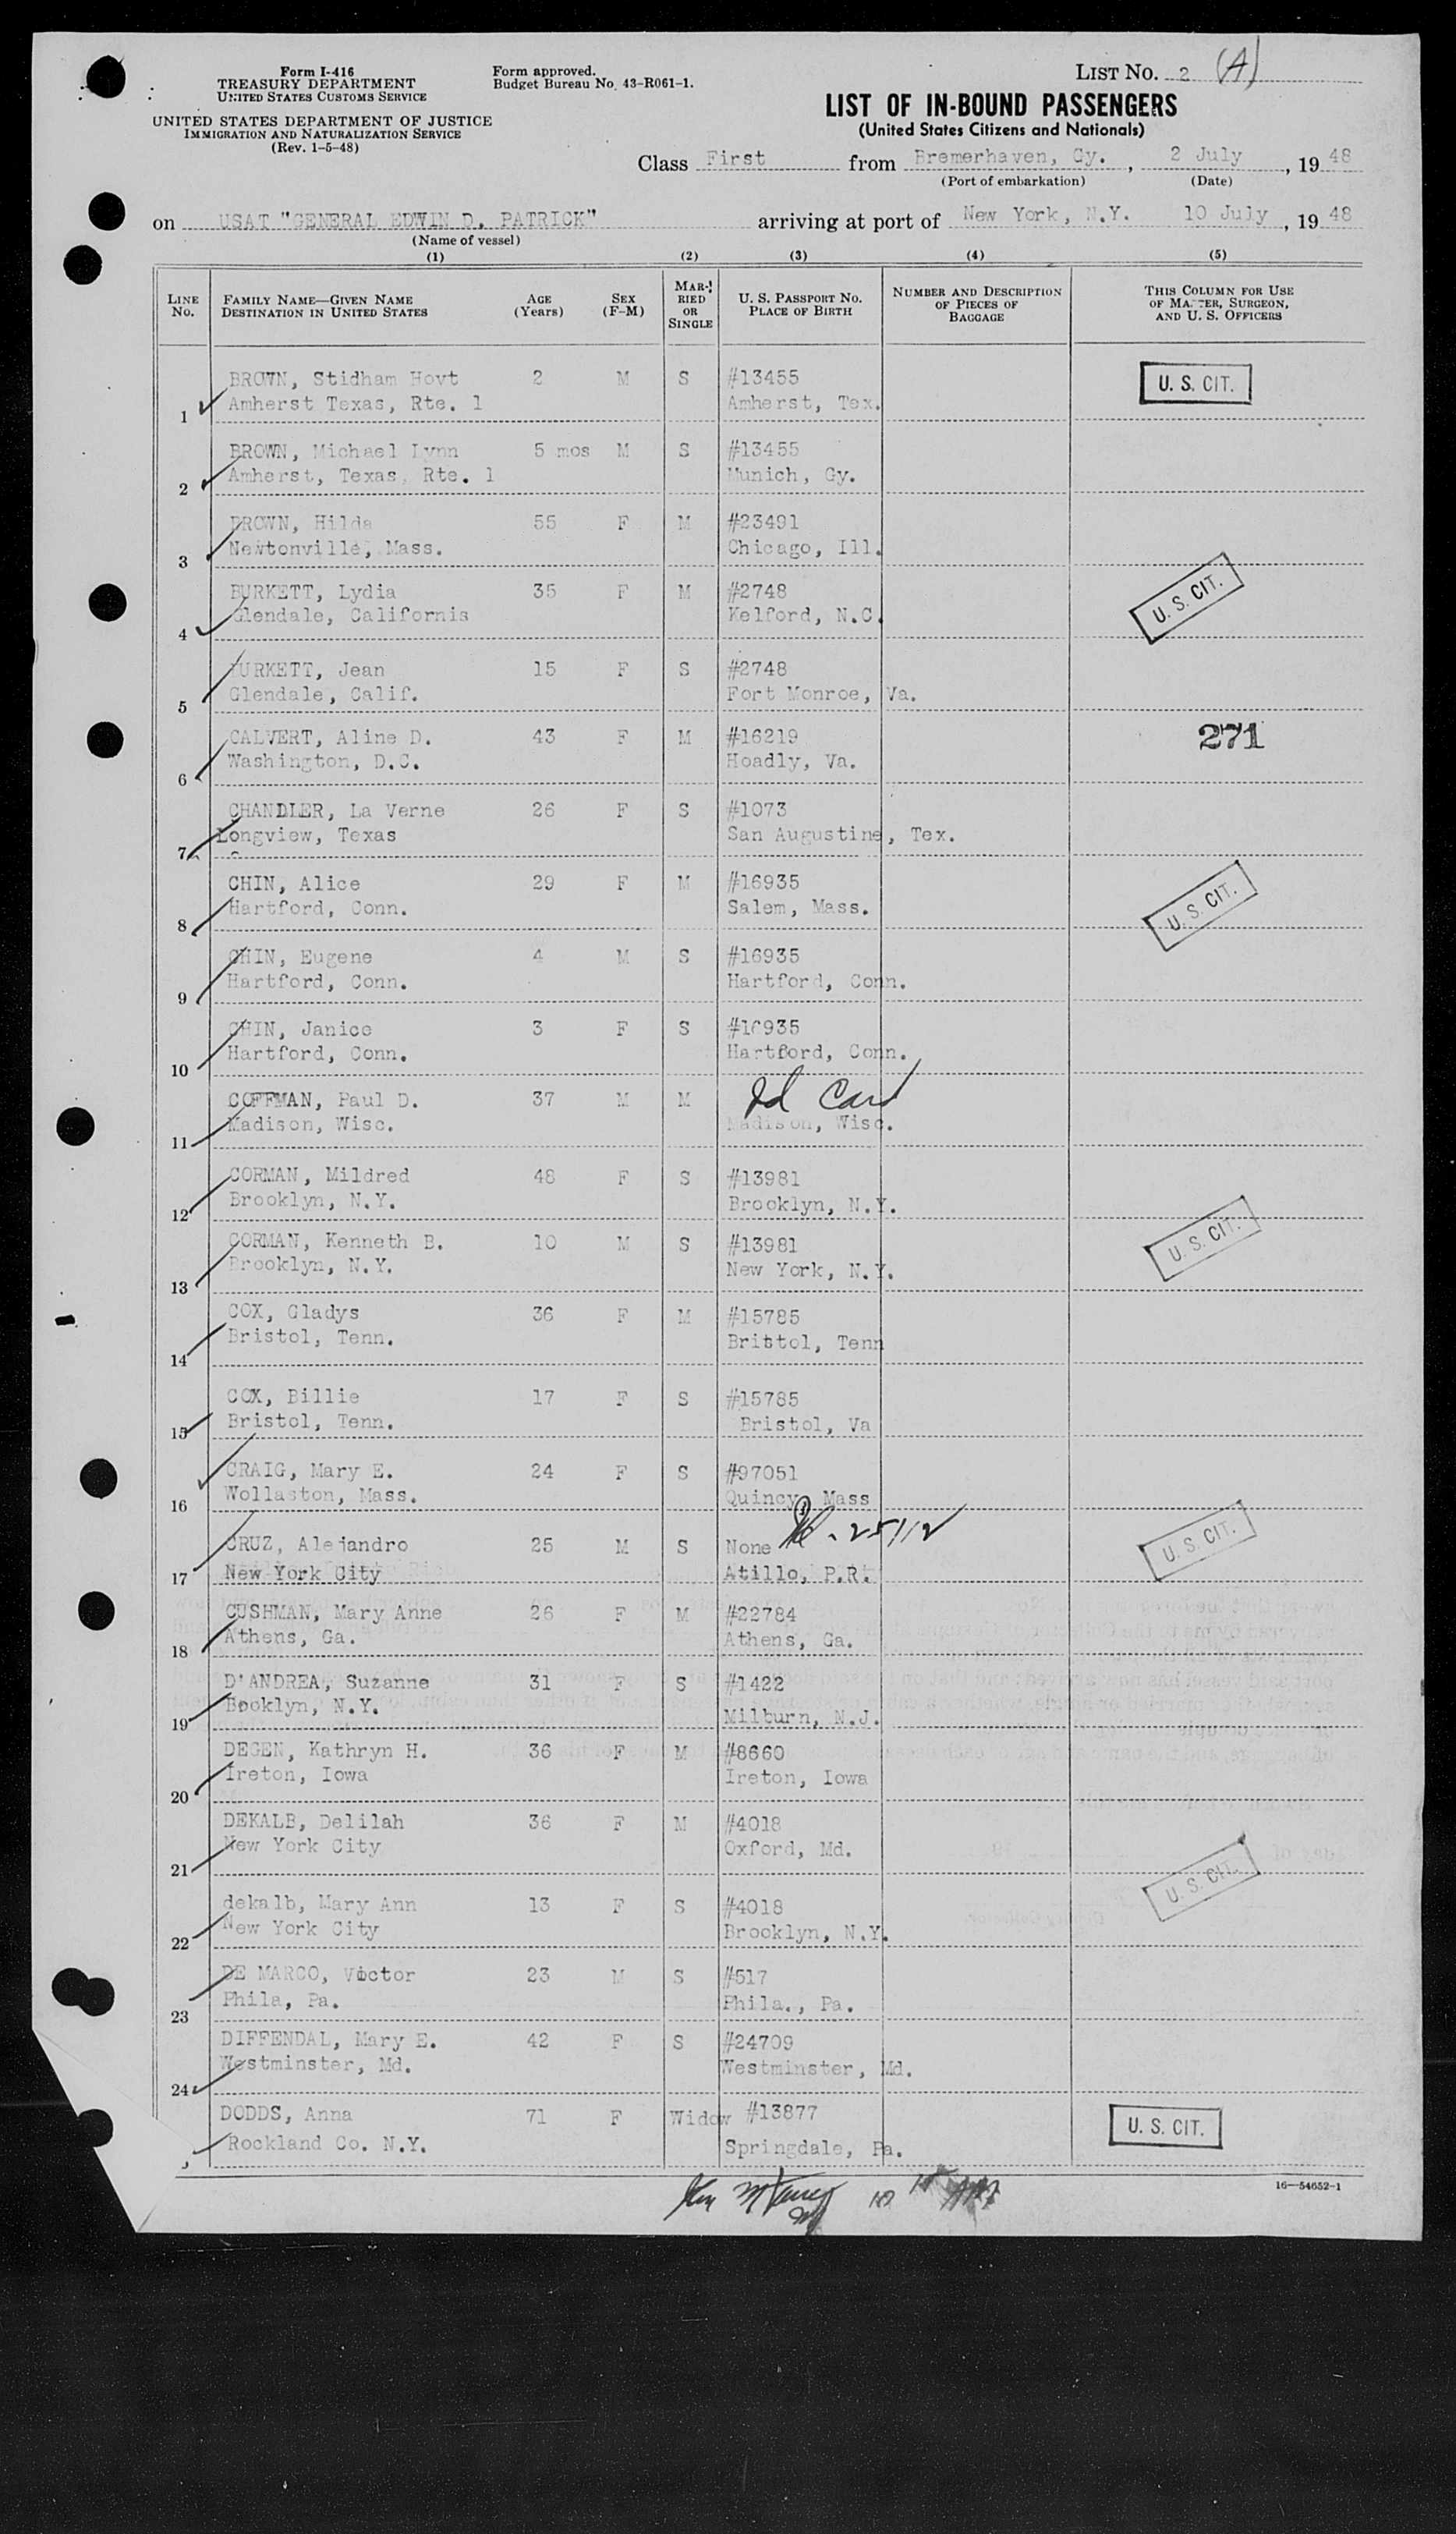 Form I-416
TREASURY DEPARTMENT
UNITED STATES CUSTOMS SERVICE
UNITED STATES DEPARTMENT OF JUSTICE
IMMIGRATION AND NATURALIZATION SERVICE
(Rev. 1-5-48)
Form approved.
Budget Bureau No. 43-R061-1.
LIST No. 2 (A)
LIST OF IN-BOUND PASSENGERS
(United States Citizens and Nationals)
Class First from Bremerhaven, Gy., 2 July, 1948
(Port of embarkation) (Date)
on USAT "GENERAL EDWIN D. PATRICK" arriving at port of New York, N.Y. 10 July, 1948
(Name of vessel)
(1) (2) (3) (4) (5)
LINE No. FAMILY NAME—GIVEN NAME DESTINATION IN UNITED STATES AGE (Years) SEX (F-M) MARRIED OR SINGLE U. S. PASSPORT NO. PLACE OF BIRTH NUMBER AND DESCRIPTION OF PIECES OF BAGGAGE THIS COLUMN FOR USE OF MASTER, SURGEON, AND U. S. OFFICERS
BROWN, Stidham Hoyt 2 M S #13455 U. S. CIT.
1 Amherst Texas, Rte. 1 Amherst, Tex.
BROWN, Michael Lynn 5 mos M S #13455
2 Amherst, Texas, Rte. 1 Munich, Gy.
BROWN, Hilda 55 F M #23491
3 Newtonville, Mass. Chicago, Ill.
BURKETT, Lydia 35 F M #2748 U. S. CIT.
4 Glendale, Californis Kelford, N.C.
BURKETT, Jean 15 F S #2748
5 Glendale, Calif. Fort Monroe, Va.
CALVERT, Aline D. 43 F M #16219 271
6 Washington, D.C. Hoadly, Va.
CHANDLER, La Verne 26 F S #1073
7 Longview, Texas San Augustine, Tex.
CHIN, Alice 29 F M #16935 U. S. CIT.
8 Hartford, Conn. Salem, Mass.
CHIN, Eugene 4 M S #16935
9 Hartford, Conn. Hartford, Conn.
CHIN, Janice 3 F S #16935
10 Hartford, Conn. Hartford, Conn.
COFFMAN, Paul D. 37 M M Id Card
11 Madison, Wisc. Madison, Wisc.
CORMAN, Mildred 48 F S #13981
12 Brooklyn, N.Y. Brooklyn, N.Y.
CORMAN, Kenneth B. 10 M S #13981 U. S. CIT.
13 Brooklyn, N.Y. New York, N.Y.
COX, Gladys 36 F M #15785
14 Bristol, Tenn. Bristol, Tenn
COX, Billie 17 F S #15785
15 Bristol, Tenn. Bristol, Va
CRAIG, Mary E. 24 F S #97051
16 Wollaston, Mass. Quincy, Mass
CRUZ, Alejandro 25 M S None U. S. CIT.
17 New York City Atillo, P.R.
CUSHMAN, Mary Anne 26 F M #22784
18 Athens, Ga. Athens, Ga.
D'ANDREA, Suzanne 31 F S #1422
19 Booklyn, N.Y. Milburn, N.J.
DEGEN, Kathryn H. 36 F M #8660
20 Ireton, Iowa Ireton, Iowa
DEKALB, Delilah 36 F M #4018
21 New York City Oxford, Md.
dekalb, Mary Ann 13 F S #4018 U. S. CIT.
22 New York City Brooklyn, N.Y.
DE MARCO, Victor 23 M S #517
23 Phila, Pa. Phila., Pa.
DIFFENDAL, Mary E. 42 F S #24709
24 Westminster, Md. Westminster, Md.
DODDS, Anna 71 F Widow #13877 U. S. CIT.
Rockland Co. N.Y. Springdale, Pa.
16—54652-1